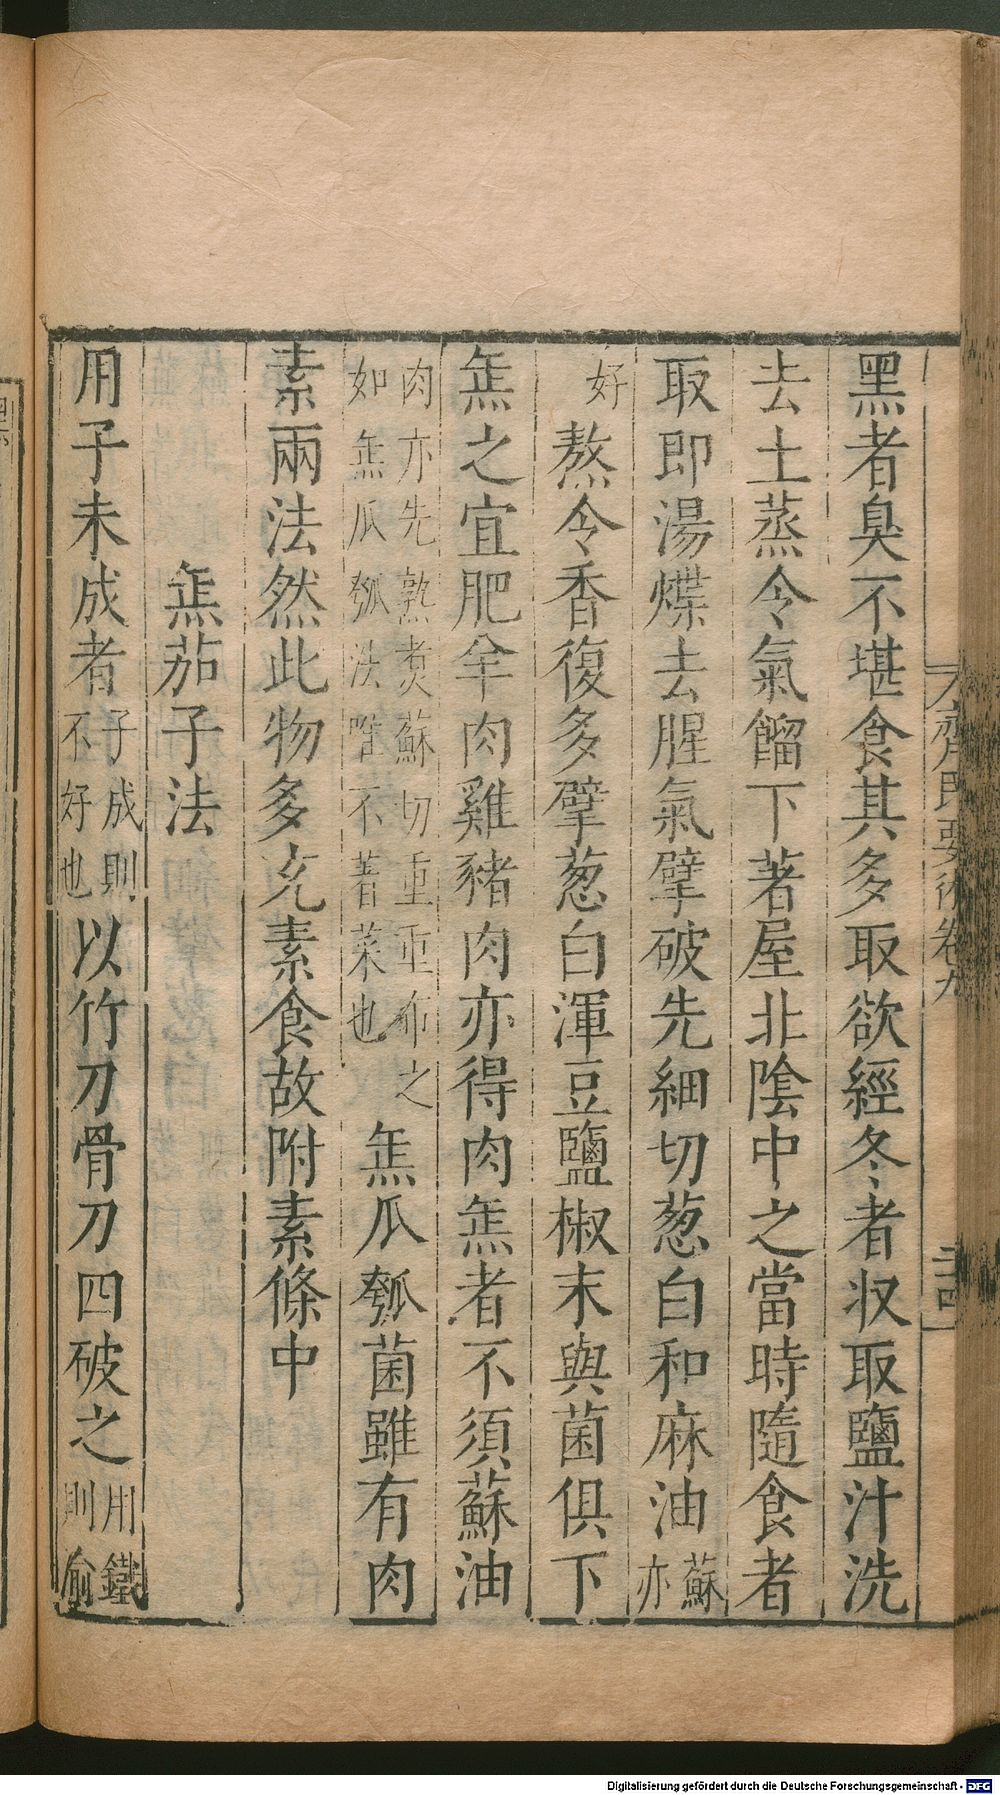 齊民要術卷九 二十四
黑者臭不堪食其多取欲經冬者収取鹽汁洗
去土蒸令氣餾下著屋北陰中之當時隨食者
取即湯煠去腥氣擘破先細切葱白和麻油蘇亦
好熬令香復多擘葱白渾豆鹽椒末與菌俱下
缹之宜肥羊肉雞豬肉亦得肉缹者不須蘇油
肉亦先熟煑蘇切重重布之如缹瓜瓠法唯不著菜也缹瓜瓠菌雖有肉
素兩法然此物多充素食故附素條中
缹茄子法
用子未成者子成則不好也以竹刀骨刀四破之用鐵則渝
Digitalisierung gefördert durch die Deutsche Forschungsgemeinschaft - DFG